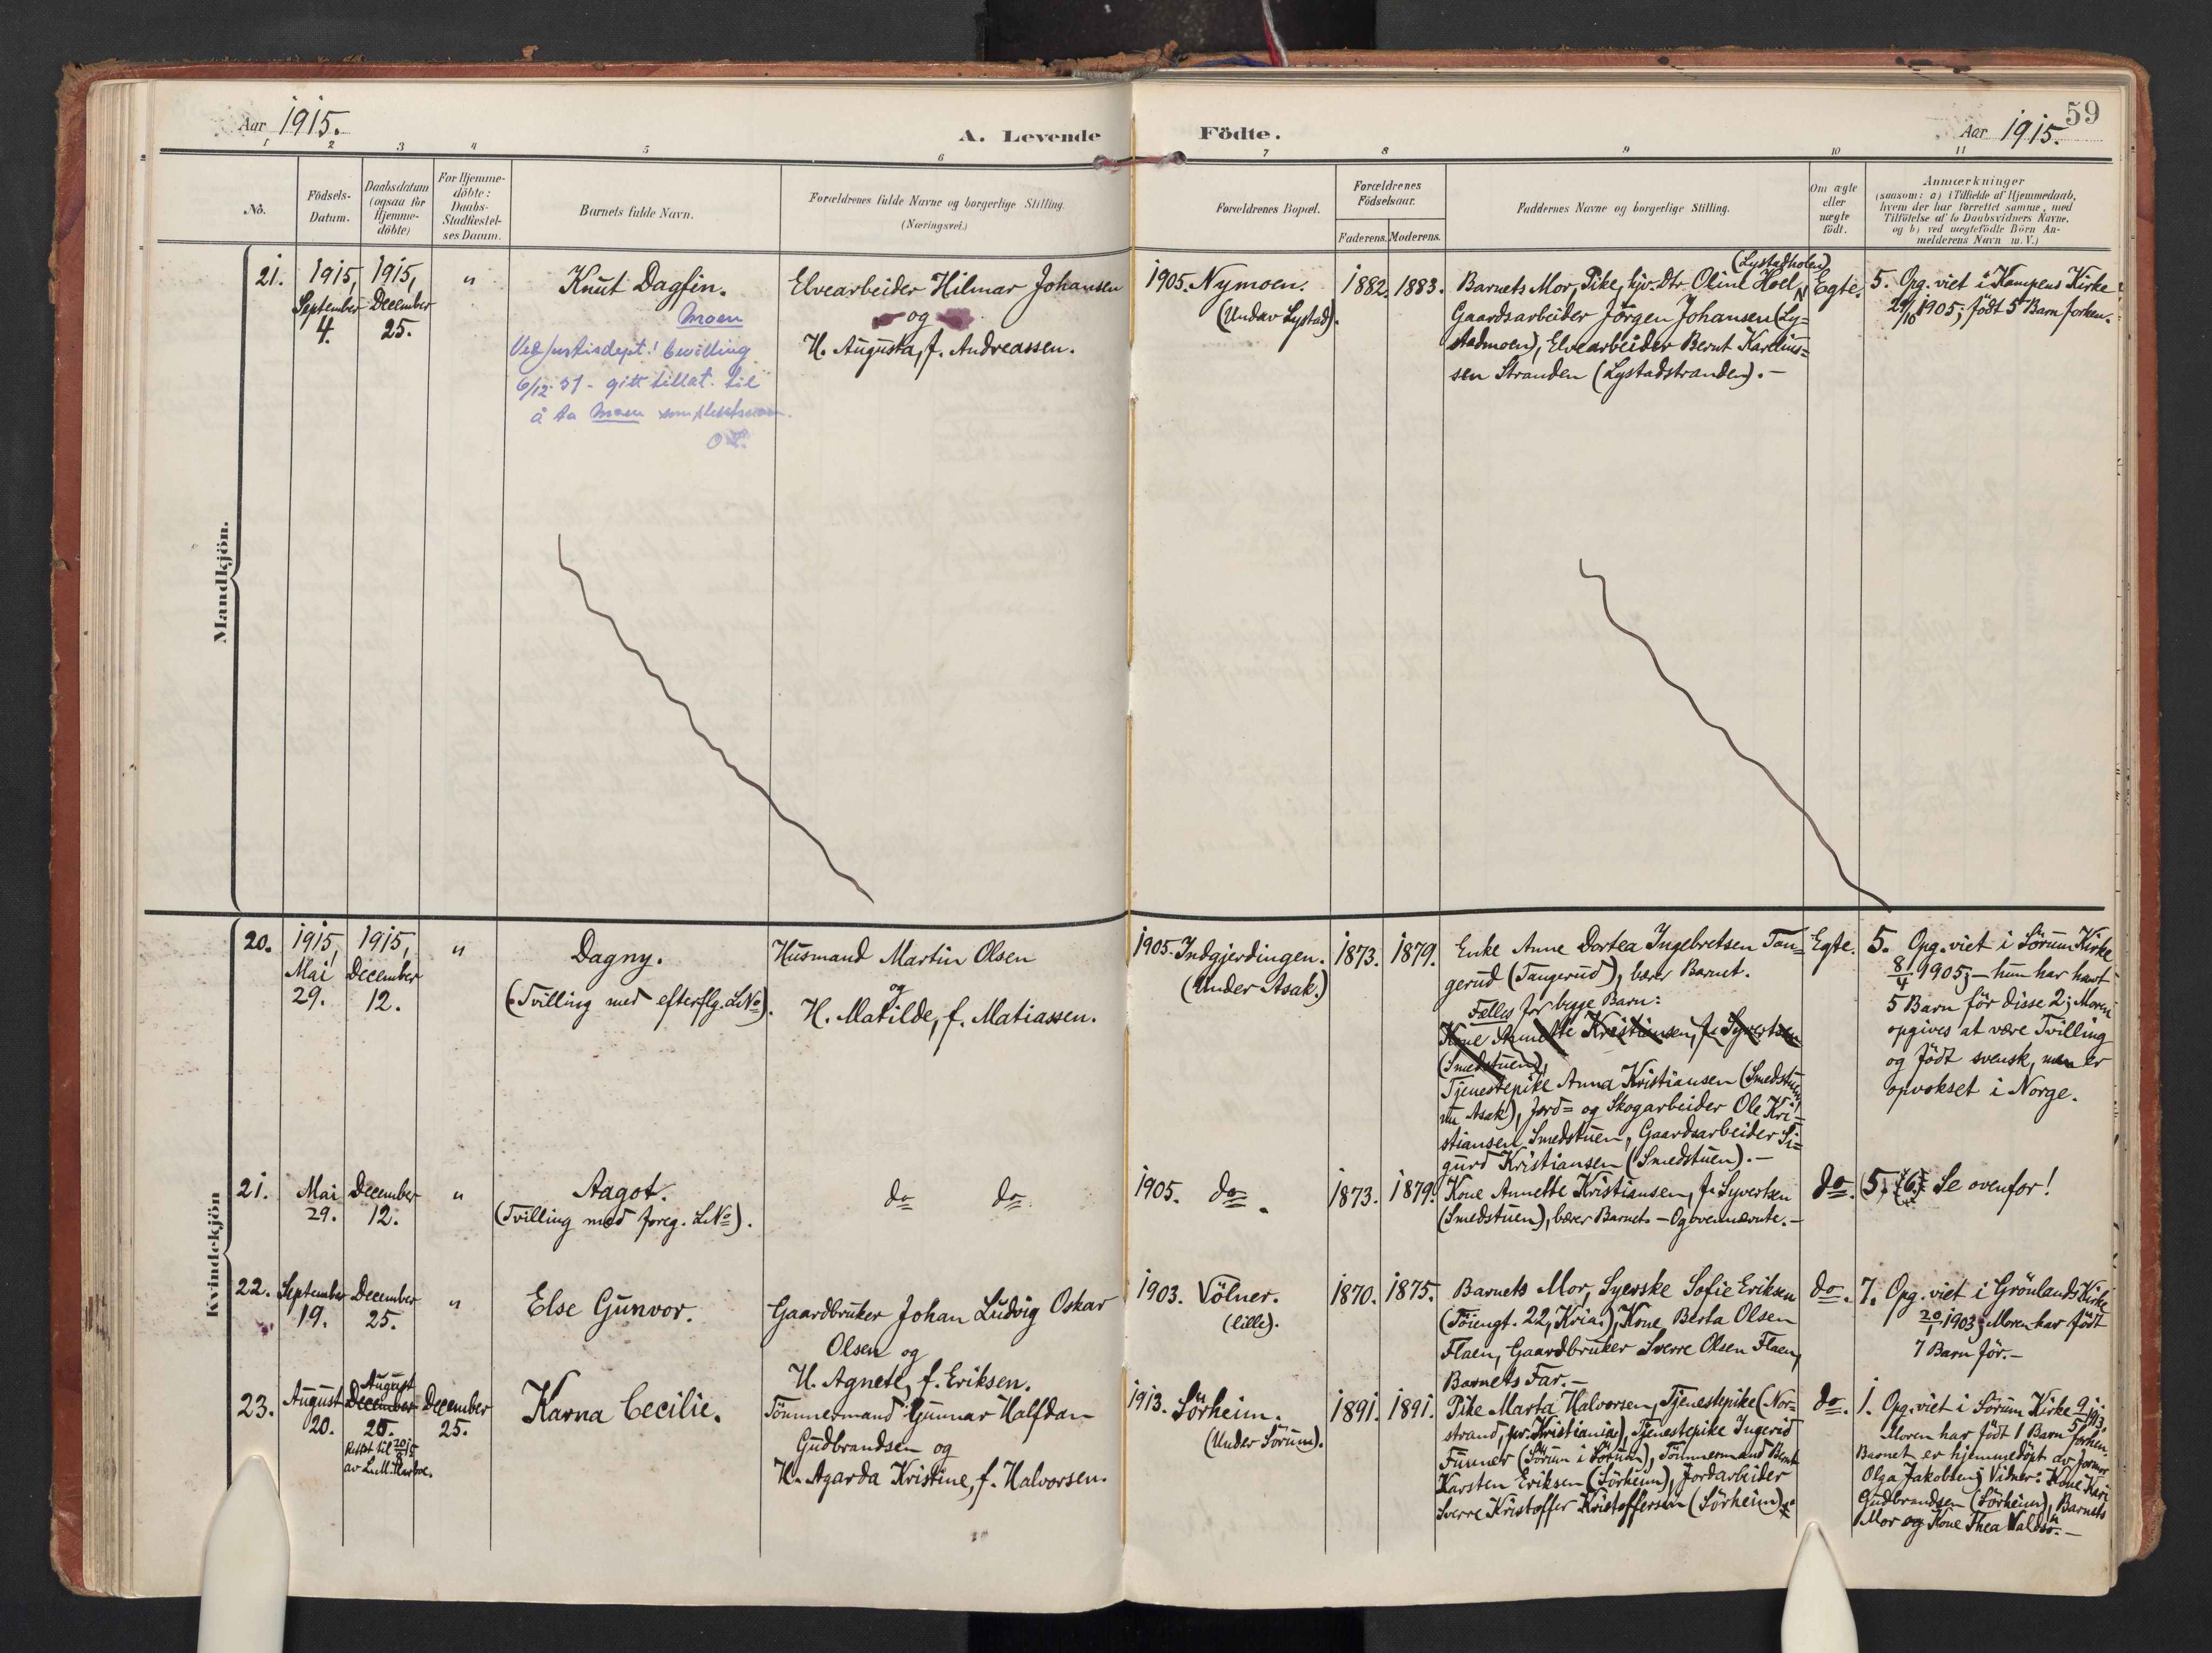 59
Aar 1915.
A. Levende Födte.
Aar 1915.
1 2 3 4 5 6 7 8 9 10 11
No.
Födsels-
Datum.
Daabsdatum
(ogsaa for
Hjemme-
döbte)
For Hjemme-
döbte:
Daabs-
Stadfæstel-
ses Datum.
Barnets fulde Navn.
Forældrenes fulde Navne og borgerlige Stilling.
(Næringsvei.)
Forældrenes Bopæl.
Forældrenes
Födselsaar.
Faderens. Moderens.
Faddernes Navne og borgerlige Stilling.
Om ægte
eller
uægte
födt.
Anmærkninger
(saasom: a) i Tilfælde af Hjemmedaab,
hvem der har forrettet samme, med
Tilföielse af to Daabsvidners Navne,
og b) ved uægtefödte Börn An-
melderens Navn m. V.)
Mandkjön.
21.
1915,
September
4.
1915,
December
25.
"
Knut Dagfin.
Moen
Ved Justisdept.! bevilling
6/12-31 - gitt tillat. til
å ta Moen som slektsnavn.
Elvearbeider Hilmar Johansen
og
H. Augusta, f. Andreassen.
1905. Nymoen.
(Under Lystad).
1882. 1883.
(Lystadholen)
Barnets Mor, Pike, hjv. Dtr. Oline Hoel,
Gaardsarbeider Jörgen Johansen (Ly=
stadmoen), Elvearbeider Bernt Karelius=
sen Stranden (Lystadstranden). -
Egte.
5. Opg. viet i Kampens Kirke
29/10 1905; födt 5 Barn forhen.
Kvindekjön
20.
1915,
Mai
29.
1915,
December
12.
"
Dagny.
(Tvilling med efterflg. LNo).
Husmand Martin Olsen
og
H. Matilde, f. Matiassen.
1905. Indgjerdingen.
(Under Asak.)
1873. 1879.
Enke Anne Dortea Ingebretsen Tan=
gerud (Tangerud), bærer Barnet.
Fælles for begge Barn:
Kone Annette Kristiansen, f. Syvertsen
(Smedstuen),
Tjenestepike Anna Kristiansen (Smedstuen
u. Asak), Jord= og Skogarbeider Ole Kri=
stiansen Smedstuen, Gaardsarbeider Si=
gurd Kristiansen (Smedstuen). -
Egte.
5. Opg. viet i Sörum Kirke
8/4 1905; - hun har havt
5 Barn för disse 2; Moren
opgives at være Tvilling
og födt svensk, men er
opvokset i Norge.
21.
Mai
29.
December
12.
"
Aagot.
(Tvilling med foreg. LNo).
do do
1905. do.
1873. 1879.
Kone Annette Kristiansen, f. Syvertsen
(Smedstuen), bærer Barnet. - Og ovennævnte. -
do.
5, (6). Se ovenfor!
22.
September
19.
December
25.
"
Else Gunvor.
Gaardbruker Johan Ludvig Oskar
Olsen og
H. Agnete, f. Eriksen.
1903. Völner.
(lille).
1870. 1875.
Barnets Mor, Syerske Sofie Eriksen
(Töiengt. 22, Kria.), Kone Berta Olsen
Flaen, Gaardbruker Sverre Olsen Flaen,
Barnets Far. -
do.
7. Opg. viet i Grönlands Kirke
20/1 1903; Moren har födt
7 Barn för. -
23.
August
20.
August
December
25.
Rettet til 20/8 15
av
December
25.
Karna Cecilie.
Tömmermand Gunnar Halfdan
Gudbrandsen og
H. Agarda Kristine, f. Halvorsen.
1913. Sörheim.
(Under Sörum).
1891. 1891.
Pike Marta Halvorsen, Tjenestepike (Nor=
strand, pr. Kristiania), Tjenestepike Ingerid
Funner (Sörum i Sörum), Tömmermand Bernt
Karsten Eriksen (Sörheim), Jordarbeider
Sverre Kristoffer Kristoffersen (Sörheim).
do.
1. Opg. viet i Sörum Kirke 9/5 1913.
Moren har födt 1 Barn forhen.
Barnet er hjemmedöpt av Jormor
Olga Jakobsen; Vidner: Kone Kari
Gudbrandsen (Sörheim), Barnets
Mor og Kone Thea Valdsö. -